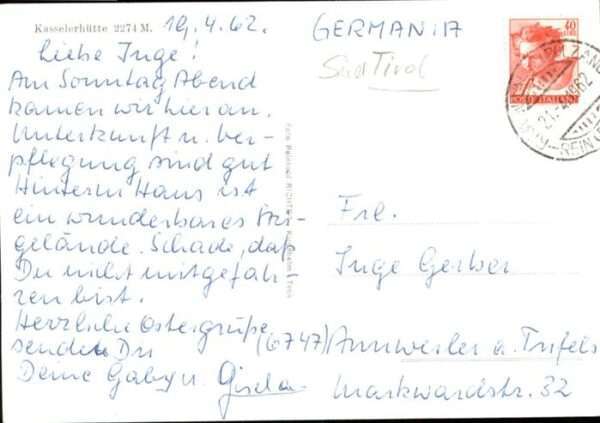 Kasselerhütte 2274 M.
19.4.62.
Liebe Inge!
Am Sonntag Abend
kamen wir hier an.
Unterkunft u. Ver-
pflegung sind gut
Hinterm Haus ist
ein wunderbares Ski-
gelände. Schade, daß
Du nicht mitgefah-
ren bist.
Herzliche Ostergrüße
sendet Dir
Deine Gaby u. Gisela
GERMANIA
Süd Tirol
40
POSTE ITALIANE
BOLZANO
Frl.
Inge Gerber
(6747) Annweiler a. Trifels
Markwardstr. 32